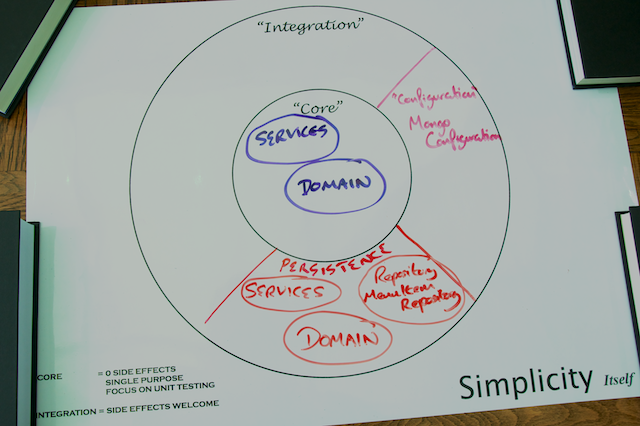 "Integration"
"Core"
SERVICES
DOMAIN
"Configuration"
Mongo
Configuration
PERSISTENCE
SERVICES
Repository
MenuItem
Repository
DOMAIN
CORE = 0 SIDE EFFECTS
SINGLE PURPOSE
FOCUS ON UNIT TESTING
INTEGRATION = SIDE EFFECTS WELCOME
Simplicity Itself